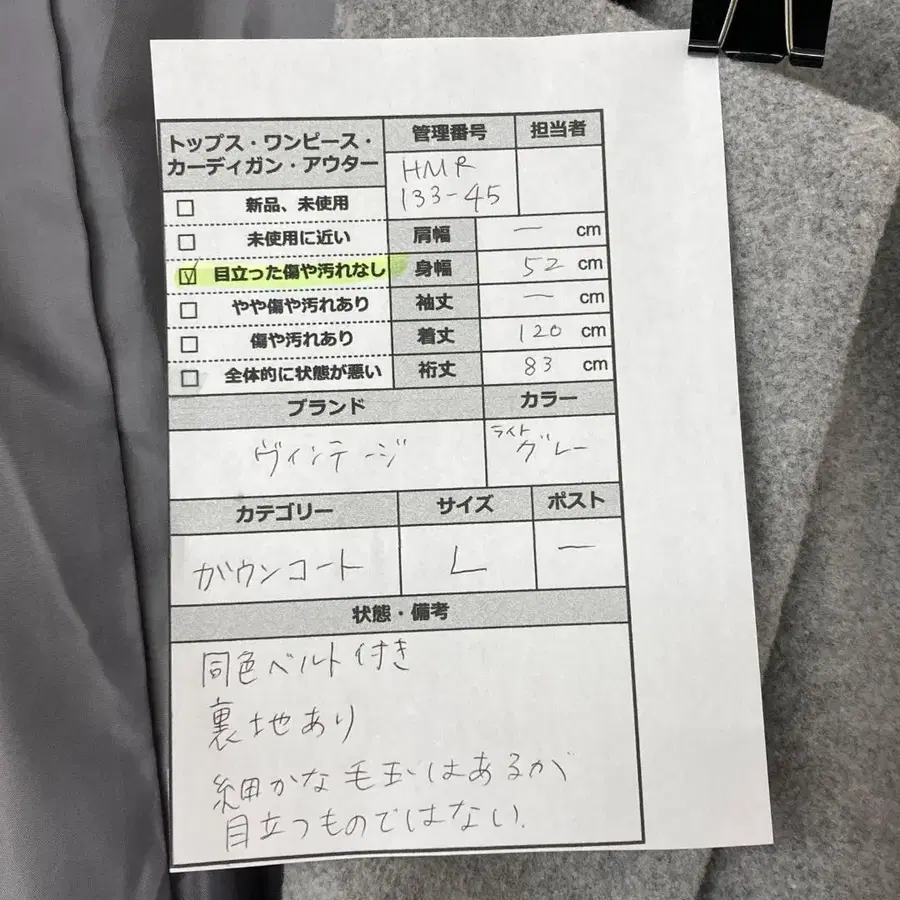 トップス・ワンピース・
カーディガン・アウター
管理番号
担当者
HMR
133-45
□ 新品、未使用
□ 未使用に近い
☑ 目立った傷や汚れなし
□ やや傷や汚れあり
□ 傷や汚れあり
□ 全体的に状態が悪い
肩幅 ー cm
身幅 52 cm
袖丈 ー cm
着丈 120 cm
裄丈 83 cm
ブランド
カラー
ヴィンテージ
ライト
グレー
カテゴリー
サイズ
ポスト
ガウンコート
L
ー
状態・備考
同色ベルト付き
裏地あり
細かな毛玉はあるが
目立つものではない.